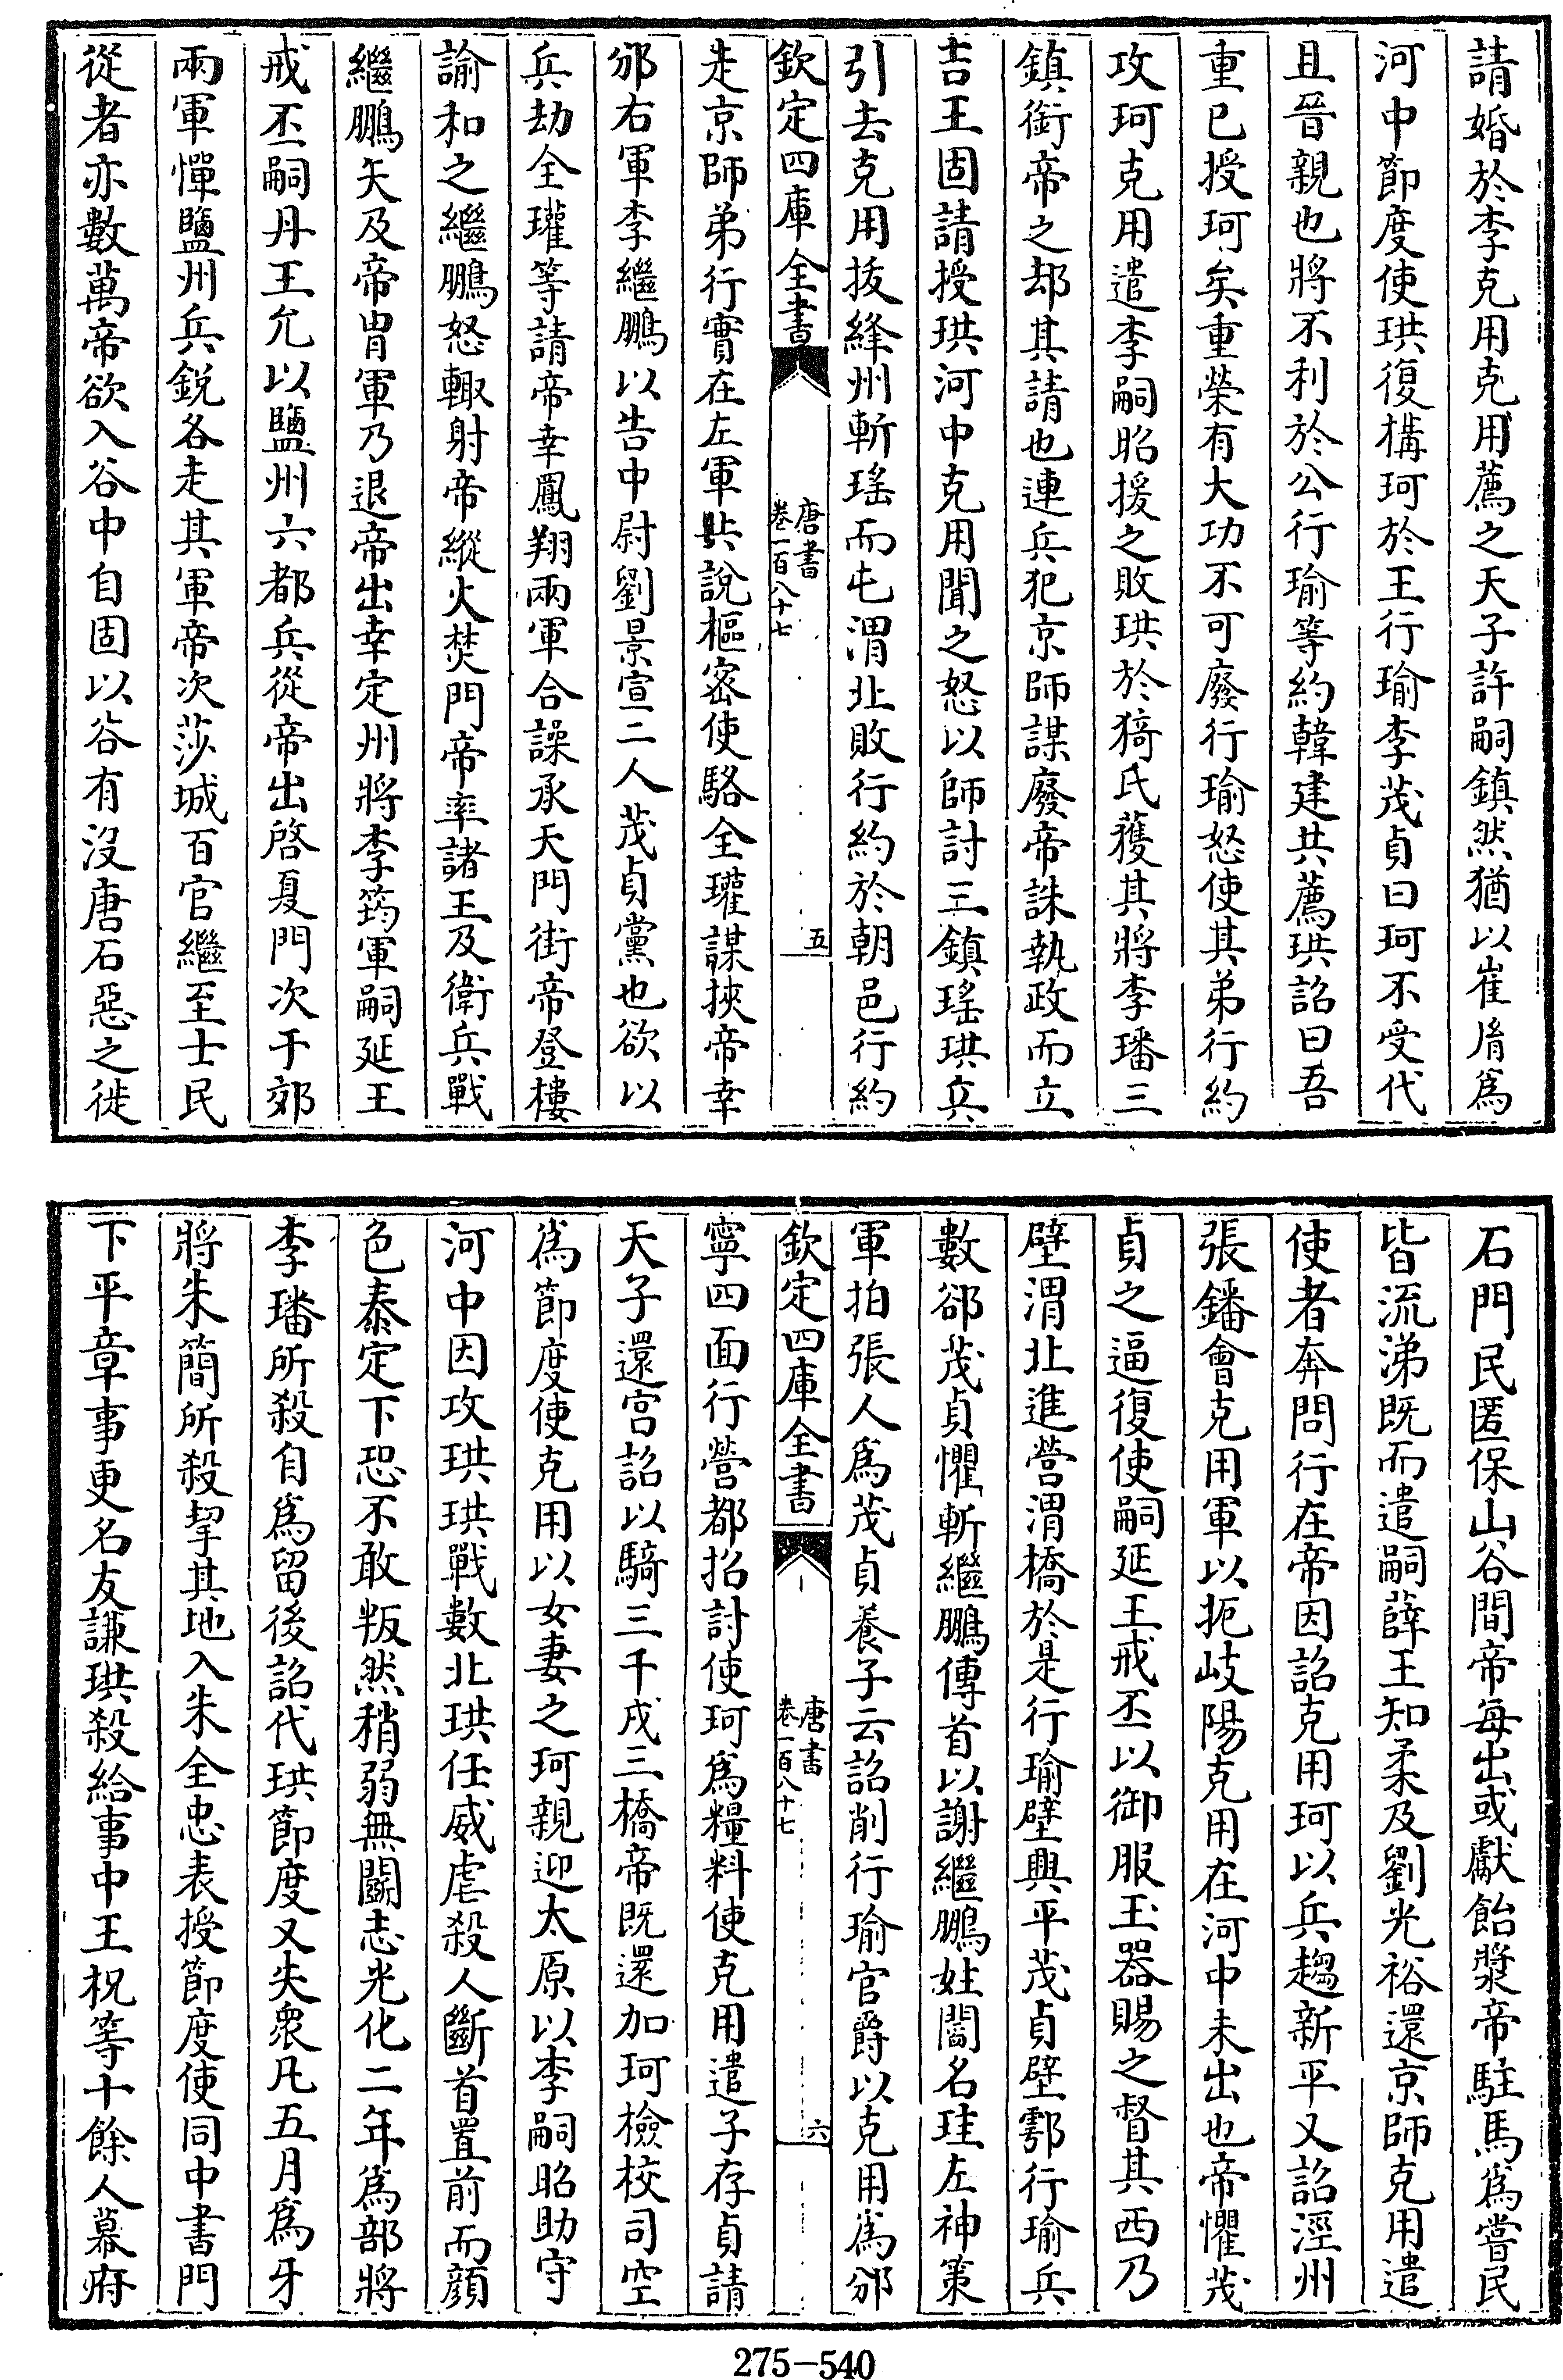 請婚於李克用克用薦之天子許嗣鎮然猶以崔㣧為
河中節度使珙復構珂於王行瑜李茂貞曰珂不受代
且晉親也將不利於公行瑜等約韓建共薦珙詔曰吾
重已授珂矣重榮有大功不可廢行瑜怒使其弟行約
攻珂克用遣李嗣昭援之敗珙於猗氏獲其將李璠三
鎮銜帝之却其請也連兵犯京師謀廢帝誅執政而立
吉王固請授珙河中克用聞之怒以師討三鎮瑤珙兵
引去克用拔絳州斬瑤而屯渭北敗行約於朝邑行約
欽定四庫全書
唐書
卷一百八十七
五
走京師弟行實在左軍共說樞密使駱全瓘謀挾帝幸
邠右軍李繼鵬以告中尉劉景宣二人茂貞黨也欲以
兵劫全瓘等請帝幸鳳翔兩軍合譟承天門街帝登樓
諭和之繼鵬怒輙射帝縱火焚門帝率諸王及衛兵戰
繼鵬矢及帝冑軍乃退帝出幸定州將李筠軍嗣延王
戒丕嗣丹王允以鹽州六都兵從帝出啓夏門次于郊
兩軍憚鹽州兵鋭各走其軍帝次莎城百官繼至士民
從者亦數萬帝欲入谷中自固以谷有沒唐石惡之徙
石門民匿保山谷間帝每出或獻飴漿帝駐馬為嘗民
皆流涕既而遣嗣薛王知柔及劉光裕還京師克用遣
使者奔問行在帝因詔克用珂以兵趨新平又詔涇州
張鐇會克用軍以扼岐陽克用在河中未出也帝懼茂
貞之逼復使嗣延王戒丕以御服玉器賜之督其西乃
壁渭北進營渭橋於是行瑜壁興平茂貞壁鄠行瑜兵
數郤茂貞懼斬繼鵬傳首以謝繼鵬姓閻名珪左神策
軍拍張人為茂貞養子云詔削行瑜官爵以克用為邠
欽定四庫全書
唐書
卷一百八十七
六
寧四面行營都招討使珂為糧料使克用遣子存貞請
天子還宮詔以騎三千戍三橋帝既還加珂檢校司空
為節度使克用以女妻之珂親迎太原以李嗣昭助守
河中因攻珙珙戰數北珙任威虐殺人斷首置前而顔
色泰定下恐不敢叛然稍弱無鬬志光化二年為部將
李璠所殺自為留後詔代珙節度又失衆凡五月為牙
將朱簡所殺挈其地入朱全忠表授節度使同中書門
下平章事更名友謙珙殺給事中王柷等十餘人幕府
275-540